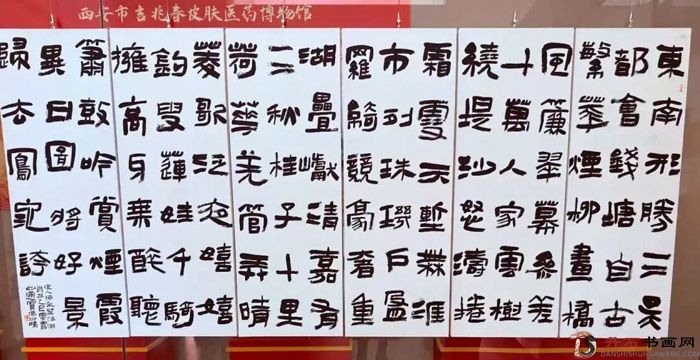 西安市吉兆春皮肤医药博物馆
東南形勝三吴
都會錢塘自古
繁華煙柳畫橋
風簾翠幕參差
十萬人家雲樹
繞堤沙怒濤捲
霜雪天塹無涯
市列珠璣戶盈
羅綺競豪奢重
湖疊巘清嘉有
三秋桂子十里
荷華羌管弄晴
菱歌泛夜嬉嬉
釣叟蓮娃千騎
擁高牙乘醉聽
簫鼓吟賞煙霞
異日圖將好景
歸去鳳池誇
丹石书画网
DANSHISHUHUAWANG.COM